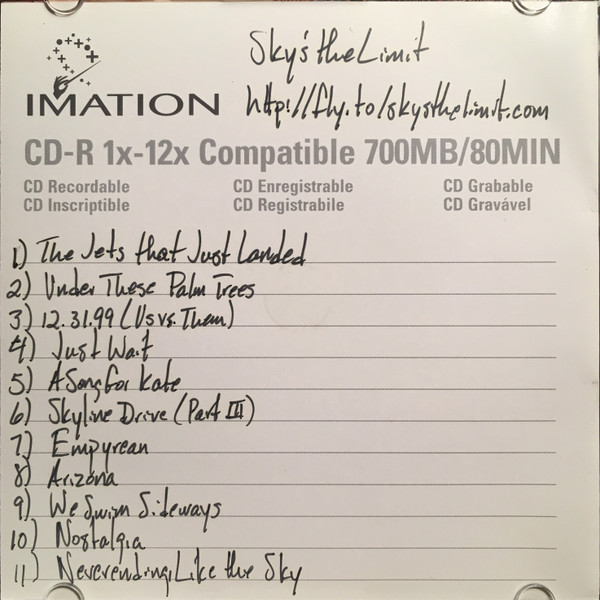 Sky's the Limit
http://fly.to/skysthelimit.com
IMATION
CD-R 1x-12x Compatible 700MB/80MIN
CD Recordable CD Enregistrable CD Grabable
CD Inscriptible CD Registrabile CD Gravável
1) The Jets that Just Landed
2) Under These Palm Trees
3) 12.31.99 (Us vs. Them)
4) Just Wait
5) A Song for Kate
6) Skyline Drive (Part III)
7) Empyrean
8) Arizona
9) We Swim Sideways
10) Nostalgia
11) Neverending, Like the Sky